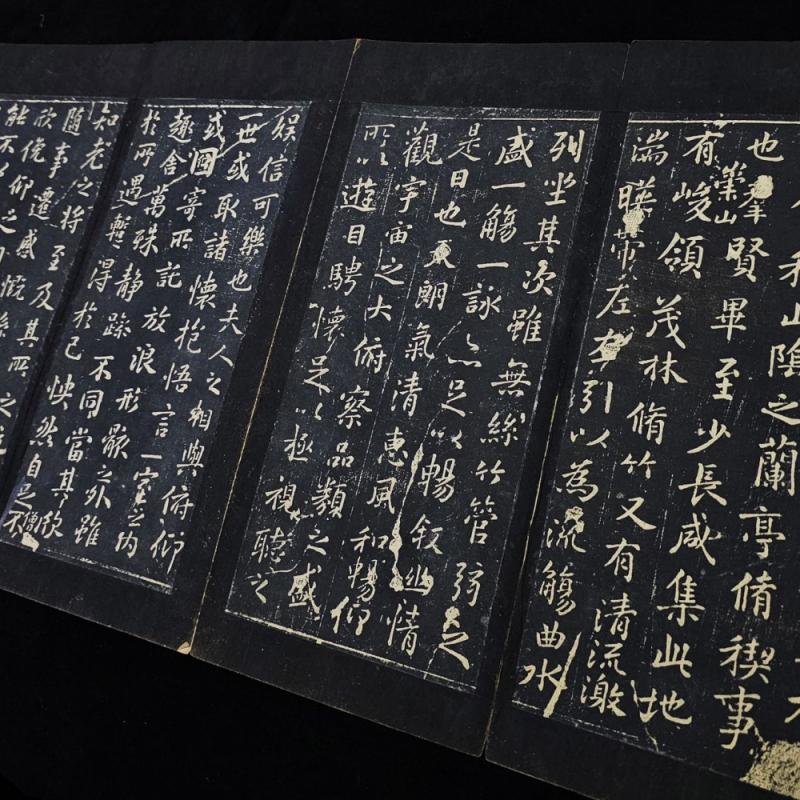 山陰之蘭亭脩禊事
也羣賢畢至少長咸集此地
有崇山峻領茂林脩竹又有清流激
湍暎帶左右引以為流觴曲水
列坐其次雖無絲竹管弦之
盛一觴一詠亦足以暢叙幽情
是日也天朗氣清惠風和暢仰
觀宇宙之大俯察品類之盛
所以遊目騁懷足以極視聽之
娛信可樂也夫人之相與俯仰
一世或取諸懷抱悟言一室之内
或因寄所託放浪形骸之外雖
趣舍萬殊静躁不同當其欣
於所遇暫得於己怏然自足不
知老之將至及其所之
隨事遷感慨係
欣俛仰之間
能不以之